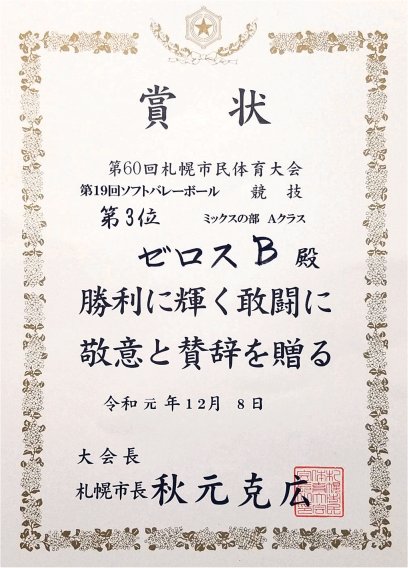 賞状
第60回札幌市民体育大会
第19回ソフトバレーボール 競技
第3位 ミックスの部 Aクラス
ゼロスB 殿
勝利に輝く敢闘に
敬意と賛辞を贈る
令和元年12月8日
大会長
札幌市長 秋元克広